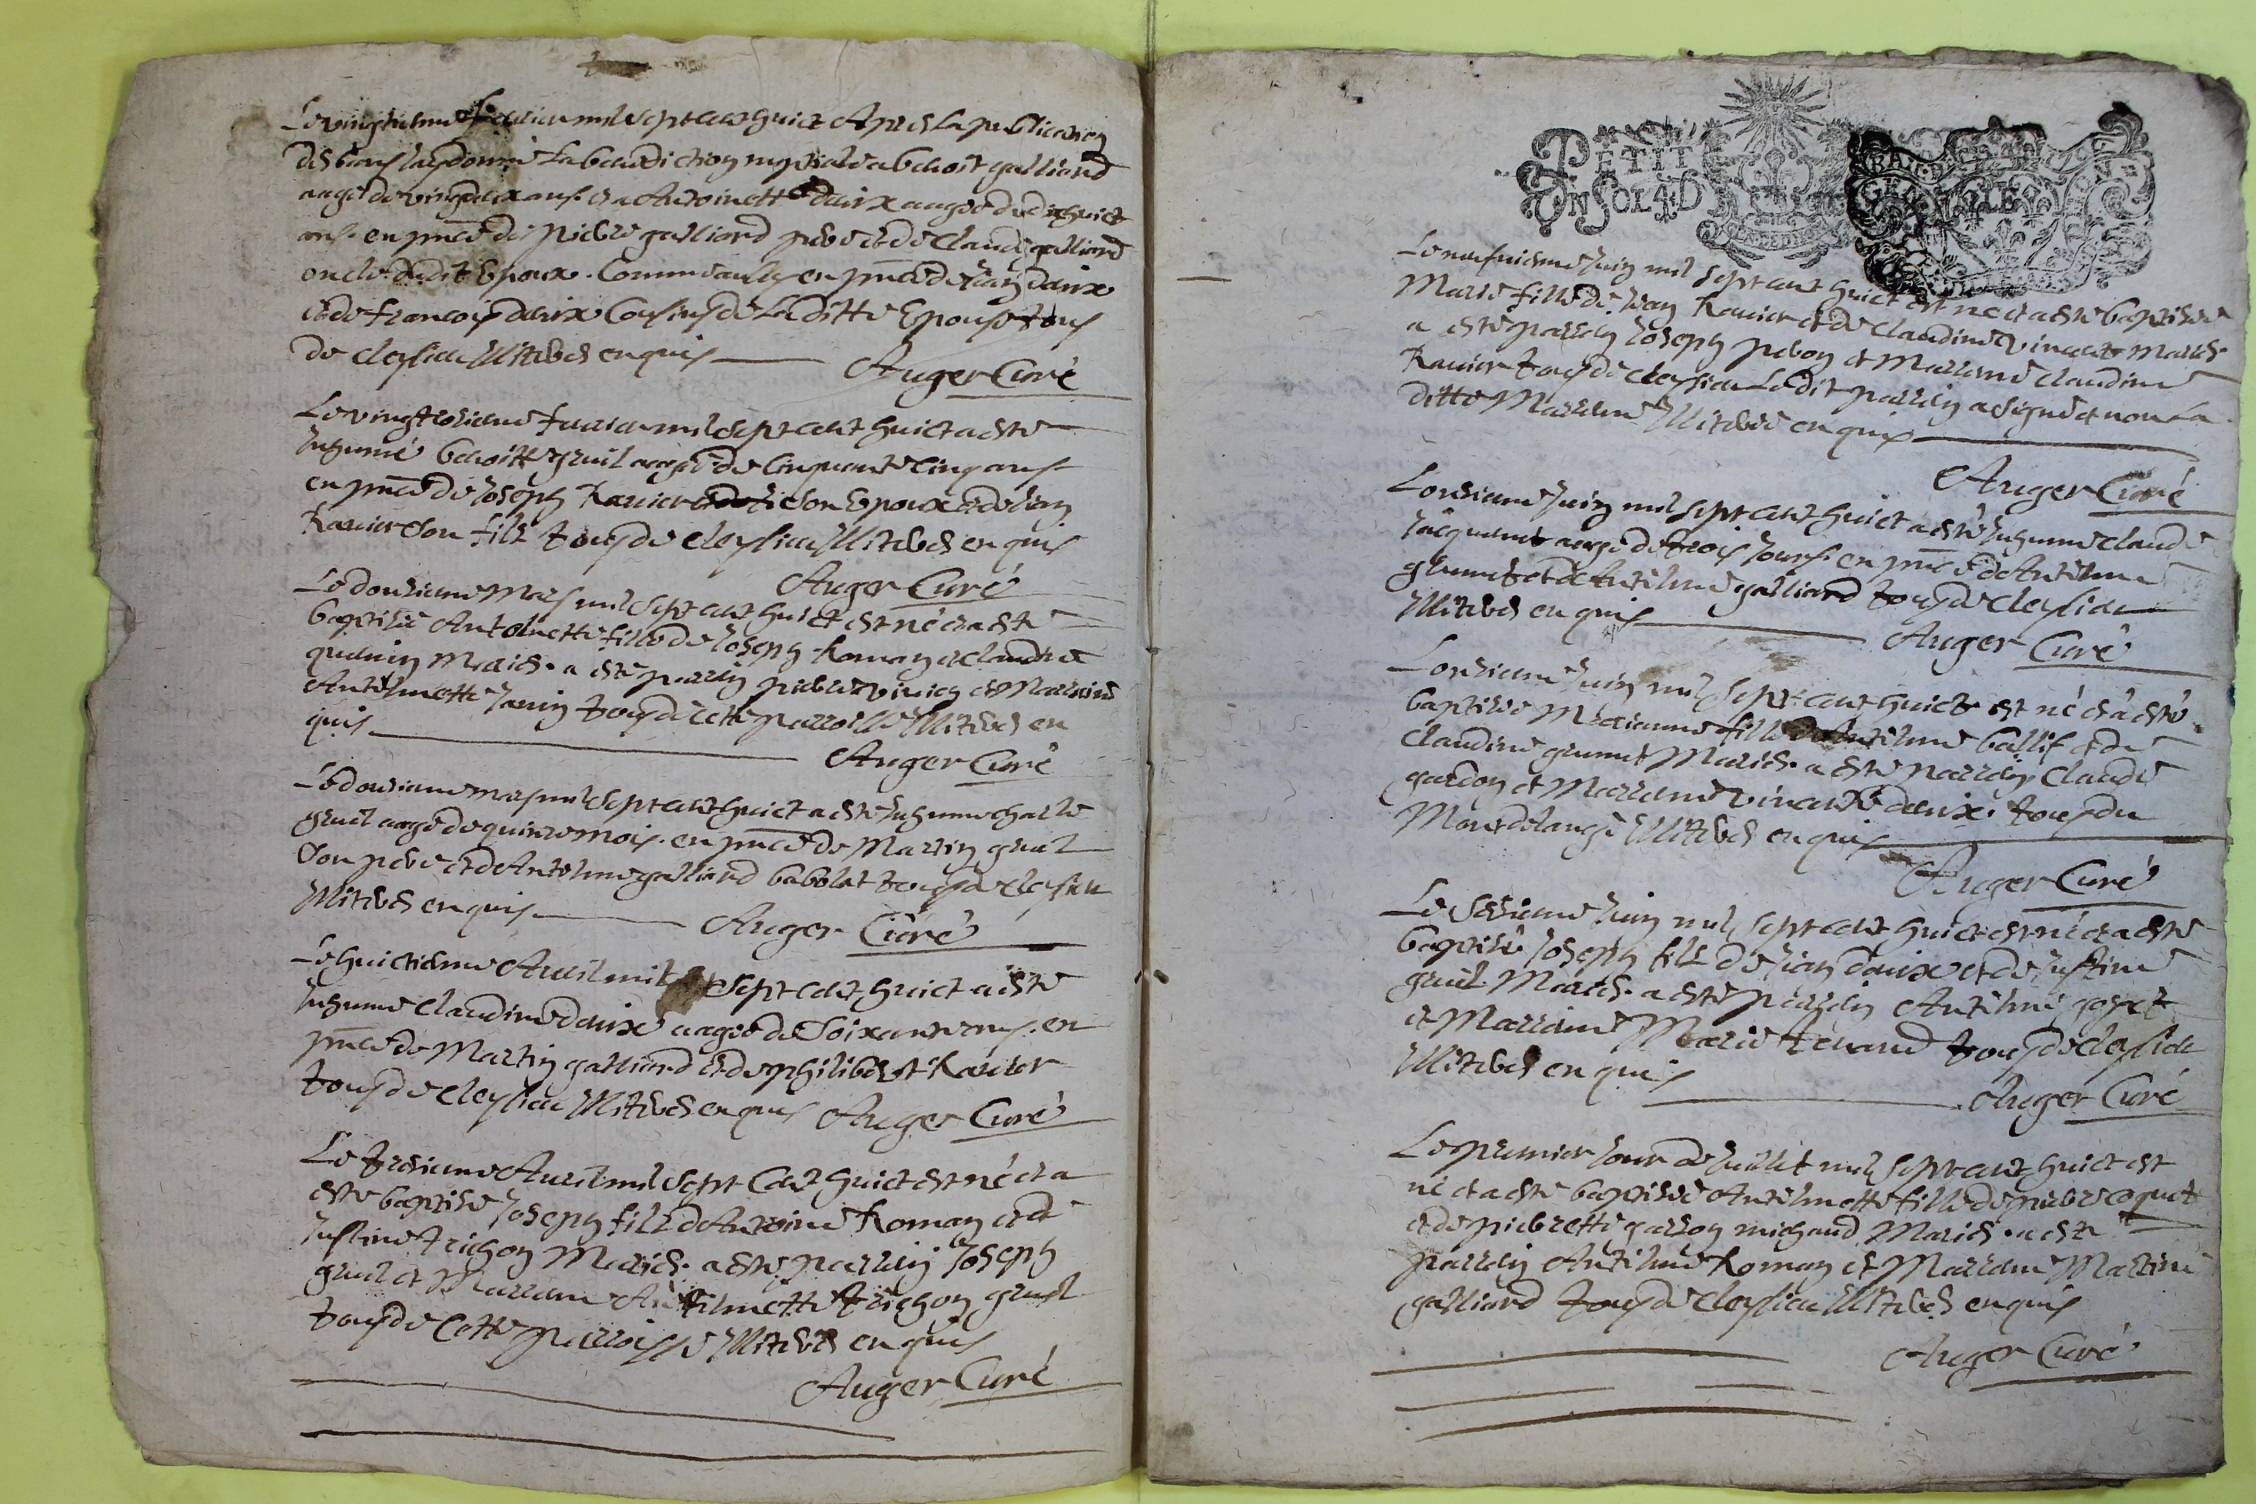 Le vingtieme feurier mil sept cent huict Apres la publication
des bans iay donné la benediction nuptiale a benoit galliard
aagé de vingdeux ans et a Antoinette daix aagée de dixhuict
ans en pnce de pierre galliard pere et de Claude galliard
oncle dudit Epoux. Comme aussy en pnce de Jean daix
et de francois daix Cousins de Laditte Epouse tous
de cleysieu Illiterés enquis
Auger Curé
Le vingtroisieme feurier mil sept cent huict a esté
Inhumé benoitte gruil aagée de Cinquante Cinq ans
en pnce de Joseph Rauier son Epoux et de Jean
Rauier son fils tous de cleysieu Illiterés enquis
Auger Curé
Le douzieme Mars mil sept cent huict est né et a esté
baptisée Antelmette fille de Joseph Roman et claudine
quenin Mariés. a esté parrin pierre vinien et Marraine
Antelmette Janin tous de cette parroisse Illiterés en
quis
Auger Curé
Le douzieme mars mil sept cent huict a esté Inhumé charle
gruil aagé de quinze mois. en pnce de Martin gruil
Son pere et de Antelme galliard babolat tous de cleysieu
Illiterés enquis
Auger Curé
Le huictieme Auril mil sept cent huict a esté
Inhumé Claudine daix aagée de Soixante ans. en
pnce de Martin galliard et de philibert Rauier
tous de Cleysieu Illiterés enquis Auger Curé
Le treisieme Auril mil sept Cent huict est né et a
esté baptisé Joseph fils de Antoine Roman et de
Justine trichon Mariés. a esté parrein Joseph
gruil et Marraine Antelmette trichon gruil
tous de Cette parroisse Illiterés enquis
Auger Curé
PETIT
UN SOL 4 D
GENERALITE
Le neufuieme Juin mil sept cent huict est né et a esté baptisée
Marie fille de Jean Rauier et de Claudine vincent Mariés.
a esté parrein Joseph pebon et Marraine Claudine
Rauier tous de Cleysieu Ledit parrein a signé et non La
ditte Marraine Illiterée enquise
Auger Curé
L'onzieme Juin mil sept cent huict a esté Inhumé claude
Jacquemet aagé de trois Jours en pnce de Antelme
grumet et de Antelme galliard tous de cleysieu
Illiterés enquis
Auger Curé
L'onzieme Juin mil sept cent huict est né et a esté
baptisée Marianne fille de Antelme ballif et de
Claudine grumet Mariés. a esté parrein Claude
gardon et Marraine vincente daix. tous du
Mont de lange Illiterés enquis
Auger Curé
Le seizieme Juin mil sept cent huict est né et a esté
baptisé Joseph fils de Jean daix et de Justine
gruil Mariés. a esté parrein Antelme goyet
et Marraine Marie tenand tous de cleysieu
Illiterés enquis
Auger Curé
Le premier Jour de Juillet mil sept cent huict est
né et a esté baptisée Antelmette fille de pierre coquet
et de pierrette garron michaud Mariés. a esté
parrein Antelme Roman et Marraine Martine
galliard tous de cleysieu Illiterés enquis
Auger Curé